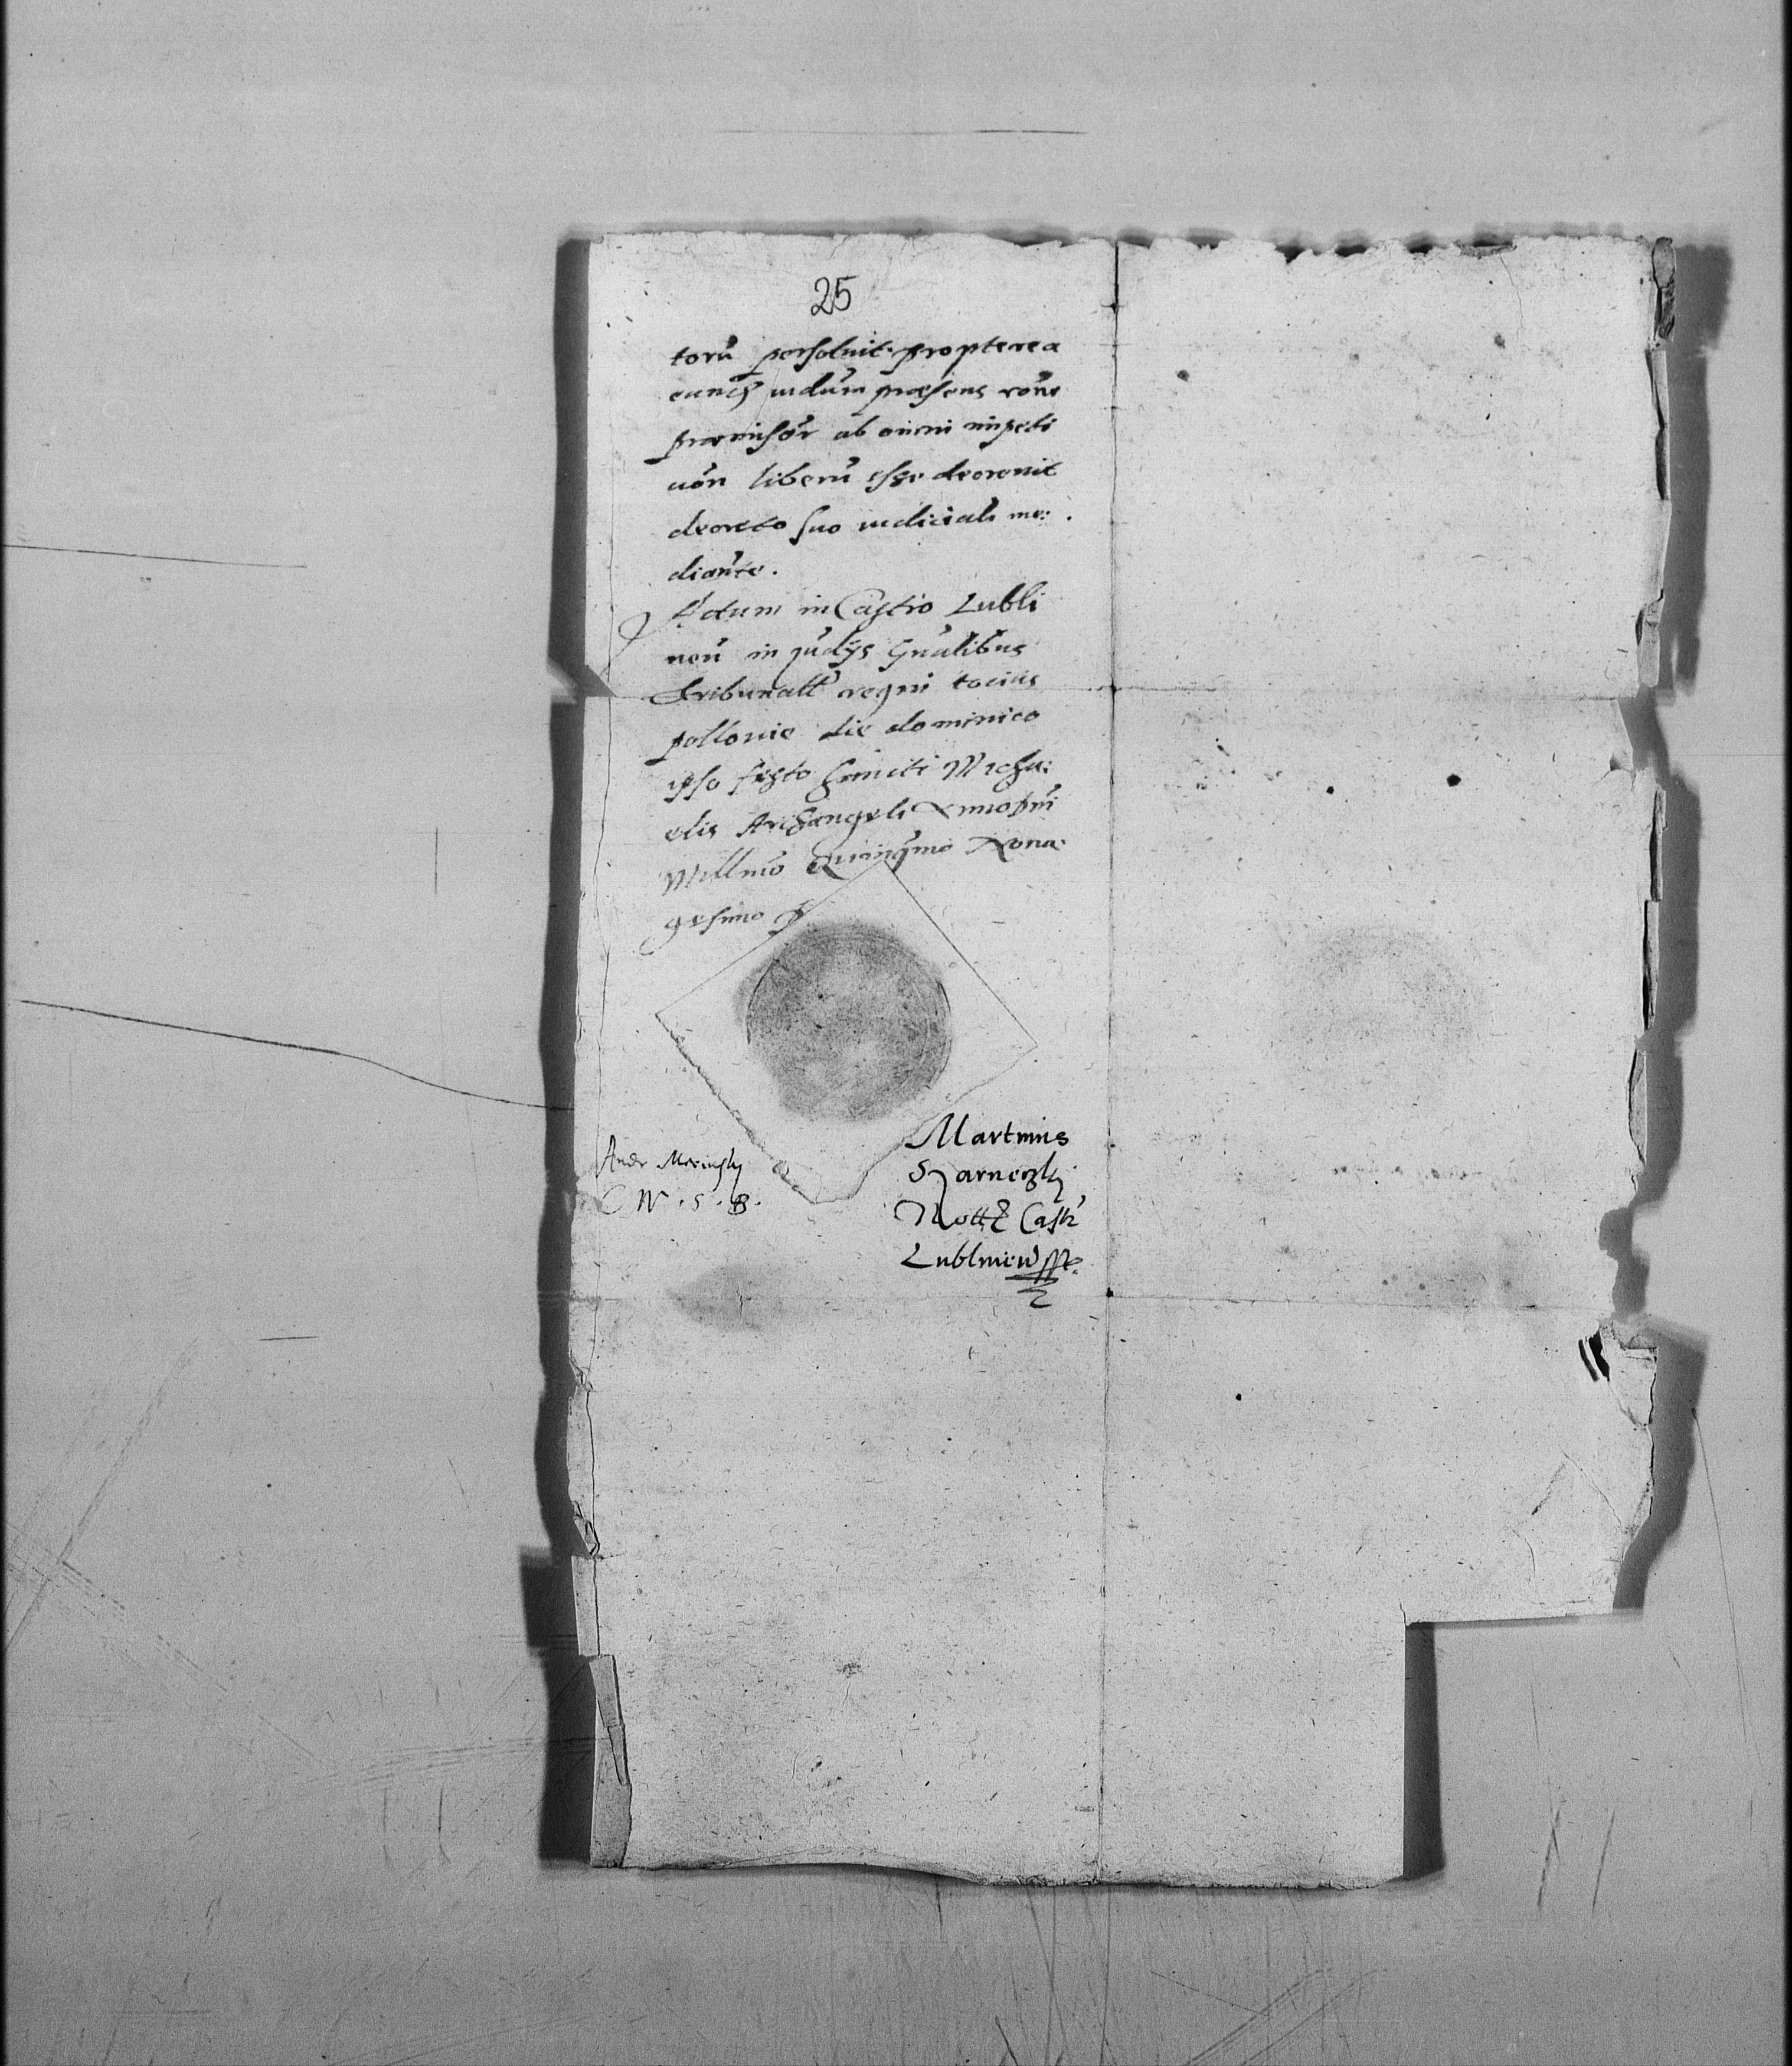 25
torū persoluit. propterea
iudūm præsens rōne
præmissor̄ ab omni impeti
uōn liberū esse decreuit
decreto suo iudiciali me:
diante.
Actum in Castro Lubli
nen̄ in iudijs Gn̄alibus
Tribunalib regni tocius
pollonie die dominico
ipso festo Sancti Micha:
elis Archangeli Anno Dni
Millmo Quingmo Nona:
gesimo
Martinus
Czarnezky
Nott Castr
Lublinen̄ sst.
Andr
W. S. B.